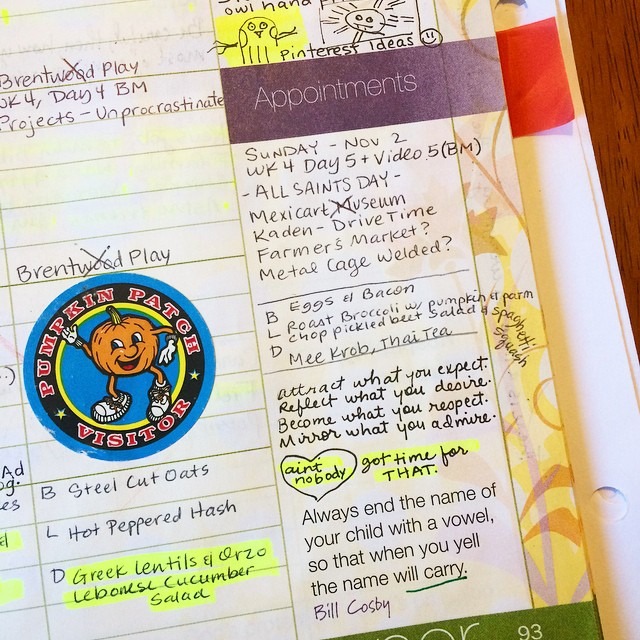 owl hand
Pinterest Ideas
Brentwood Play
WK 4, Day 4 BM
Projects - Unprocrastinate
Appointments
SUNDAY - NOV 2
WK 4 Day 5 + Video 5 (BM)
- ALL SAINTS DAY -
Mexicart Museum
Kaden - Drive Time
Farmer's Market?
Metal Cage Welded?
Brentwood Play
PUMPKIN PATCH
VISITOR
B Eggs & Bacon
L Roast Broccoli w/ pumpkin & parm
Chop pickled beet Salad & spaghetti
squash
D Mee Krob, Thai Tea
attract what you expect.
Reflect what you desire.
Become what you respect.
Mirror what you admire.
ain't
nobody
got time for
THAT.
Ad
B Steel Cut Oats
L Hot Peppered Hash
D Greek lentils & Orzo
Lebonese Cucumber
Salad
Always end the name of
your child with a vowel,
so that when you yell
the name will carry.
Bill Cosby
93